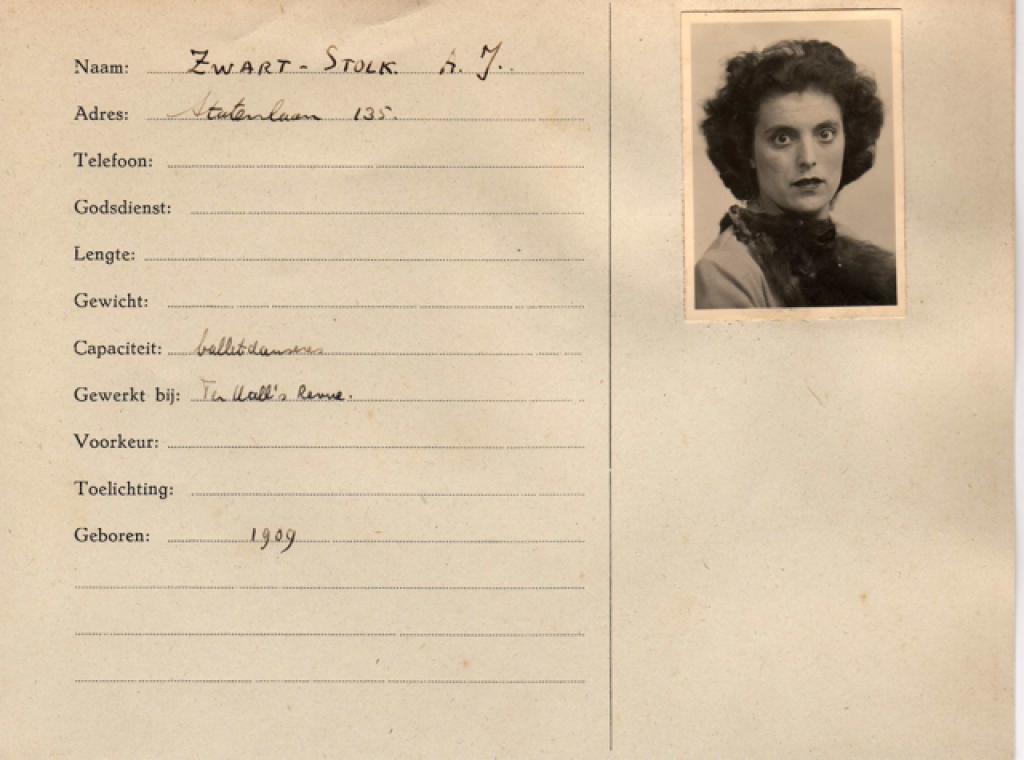 Naam: ZWART - STOLK. A. J.
Adres: Statenlaan 135.
Telefoon:
Godsdienst:
Lengte:
Gewicht:
Capaciteit: balletdanseres
Gewerkt bij: Ter Hall's Revue.
Voorkeur:
Toelichting:
Geboren: 1909